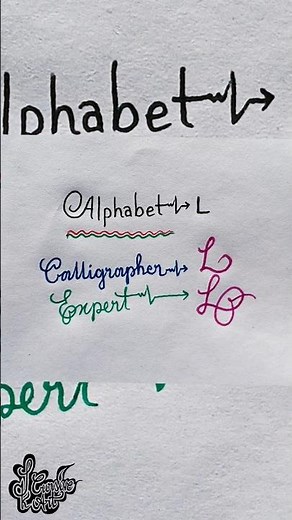 lphabet
@Alphabet L
Calligrapher L
Expert L
pert